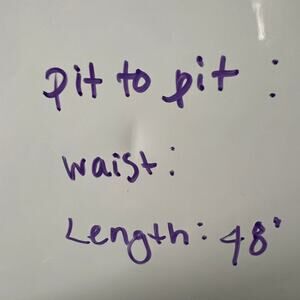 pit to pit :
waist:
Length: 48"